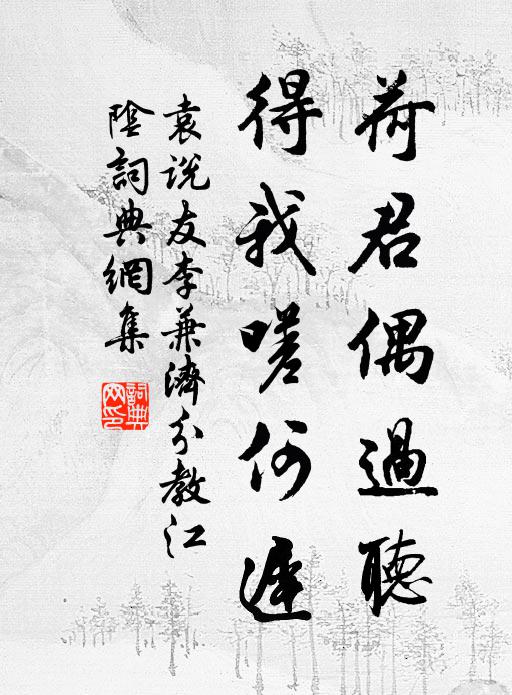 荷君偶過聽
得我嗟何遲
袁说友李兼濟分教江
陰詞典網集
詞典網印